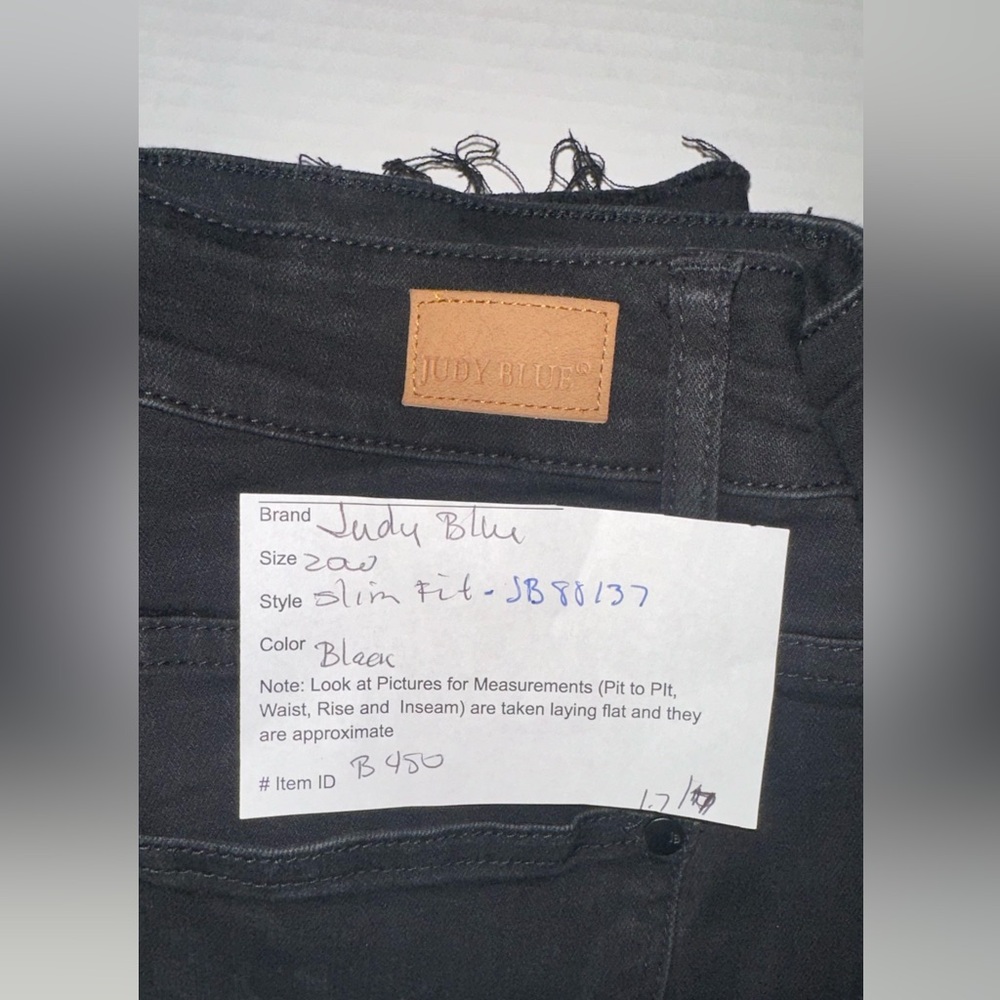 JUDY BLUE®
Brand Judy Blue
Size 20W
Style Slim Fit - JB88137
Color Black
Note: Look at Pictures for Measurements (Pit to PIt,
Waist, Rise and Inseam) are taken laying flat and they
are approximate
# Item ID B 450
1.7/